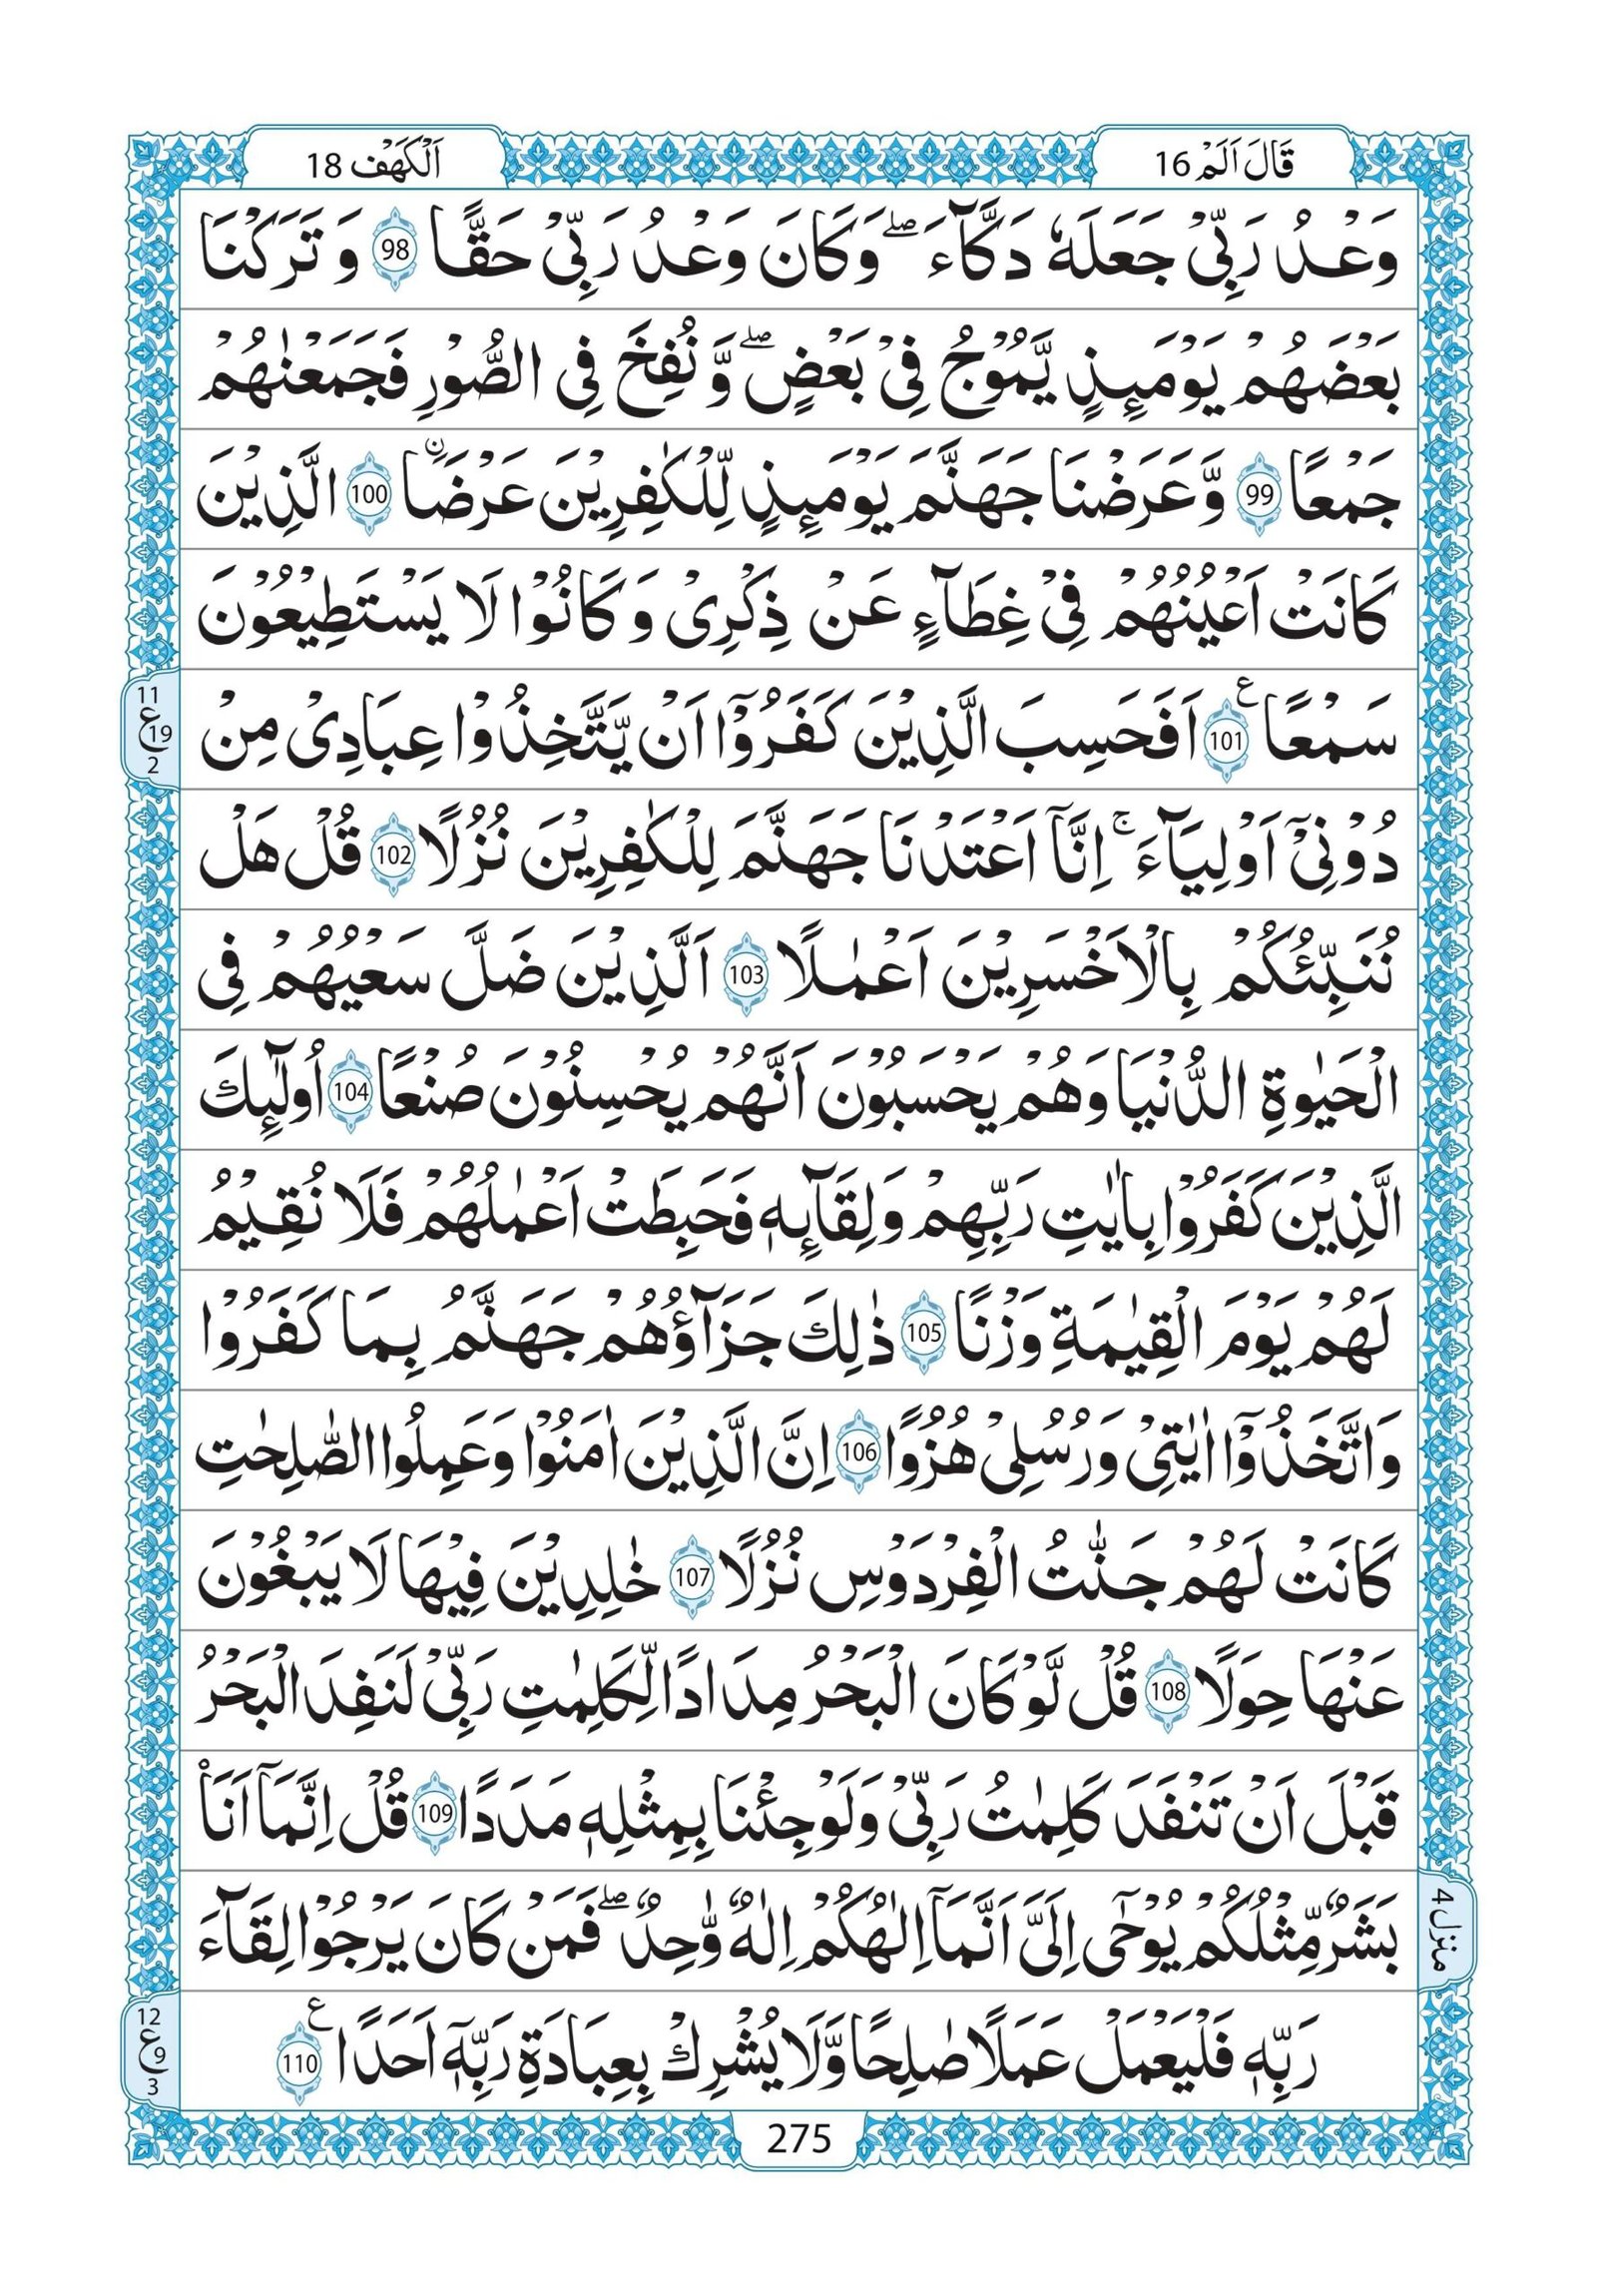 قَالَ اَلَمْ 16
اَلْكَهَفْ 18
وَعْدُ رَبِّیْ جَعَلَهٗ دَكَّآءَ ۖ وَكَانَ وَعْدُ رَبِّیْ حَقًّا 98 وَ تَرَكْنَا
بَعْضَهُمْ یَوْمَىِٕذٍ یَّمُوْجُ فِیْ بَعْضٍ ۖ وَّ نُفِخَ فِی الصُّوْرِ فَجَمَعْنٰهُمْ
جَمْعًا 99 وَّعَرَضْنَا جَهَنَّمَ یَوْمَىِٕذٍ لِّلْكٰفِرِیْنَ عَرْضَا ۨ 100 الَّذِیْنَ
كَانَتْ اَعْیُنُهُمْ فِیْ غِطَآءٍ عَنْ ذِكْرِیْ وَ كَانُوْا لَا یَسْتَطِیْعُوْنَ
سَمْعًا ع 101 اَفَحَسِبَ الَّذِیْنَ كَفَرُوْۤا اَنْ یَّتَّخِذُوْا عِبَادِیْ مِنْ
11
ع 19
2
دُوْنِیْۤ اَوْلِیَآءَ ۚ اِنَّاۤ اَعْتَدْنَا جَهَنَّمَ لِلْكٰفِرِیْنَ نُزُلًا 102 قُلْ هَلْ
نُنَبِّئُكُمْ بِالْاَخْسَرِیْنَ اَعْمٰلًا 103 اَلَّذِیْنَ ضَلَّ سَعْیُهُمْ فِی
الْحَیٰوةِ الدُّنْیَا وَهُمْ یَحْسَبُوْنَ اَنَّهُمْ یُحْسِنُوْنَ صُنْعًا 104 اُولٰٓىِٕكَ
الَّذِیْنَ كَفَرُوْا بِاٰیٰتِ رَبِّهِمْ وَلِقَآىِٕهٖ فَحَبِطَتْ اَعْمٰلُهُمْ فَلَا نُقِیْمُ
لَهُمْ یَوْمَ الْقِیٰمَةِ وَزْنًا 105 ذٰلِكَ جَزَآؤُهُمْ جَهَنَّمُ بِمَا كَفَرُوْا
وَاتَّخَذُوْۤا اٰیٰتِیْ وَرُسُلِیْ هُزُوًا 106 اِنَّ الَّذِیْنَ اٰمَنُوْا وَعَمِلُوا الصّٰلِحٰتِ
كَانَتْ لَهُمْ جَنّٰتُ الْفِرْدَوْسِ نُزُلًا 107 خٰلِدِیْنَ فِیْهَا لَا یَبْغُوْنَ
عَنْهَا حِوَلًا 108 قُلْ لَّوْ كَانَ الْبَحْرُ مِدَادًا لِّكَلِمٰتِ رَبِّیْ لَنَفِدَ الْبَحْرُ
قَبْلَ اَنْ تَنْفَدَ كَلِمٰتُ رَبِّیْ وَلَوْ جِئْنَا بِمِثْلِهٖ مَدَدًا 109 قُلْ اِنَّمَاۤ اَنَا۠
بَشَرٌ مِّثْلُكُمْ یُوْحٰۤی اِلَیَّ اَنَّمَاۤ اِلٰهُكُمْ اِلٰهٌ وّٰحِدٌ ۖ فَمَنْ كَانَ یَرْجُوْا لِقَآءَ
منزل 4
رَبِّهٖ فَلْیَعْمَلْ عَمَلًا صٰلِحًا وَّلَا یُشْرِكْ بِعِبَادَةِ رَبِّهٖۤ اَحَدًا ع 110
12
ع 9
3
275